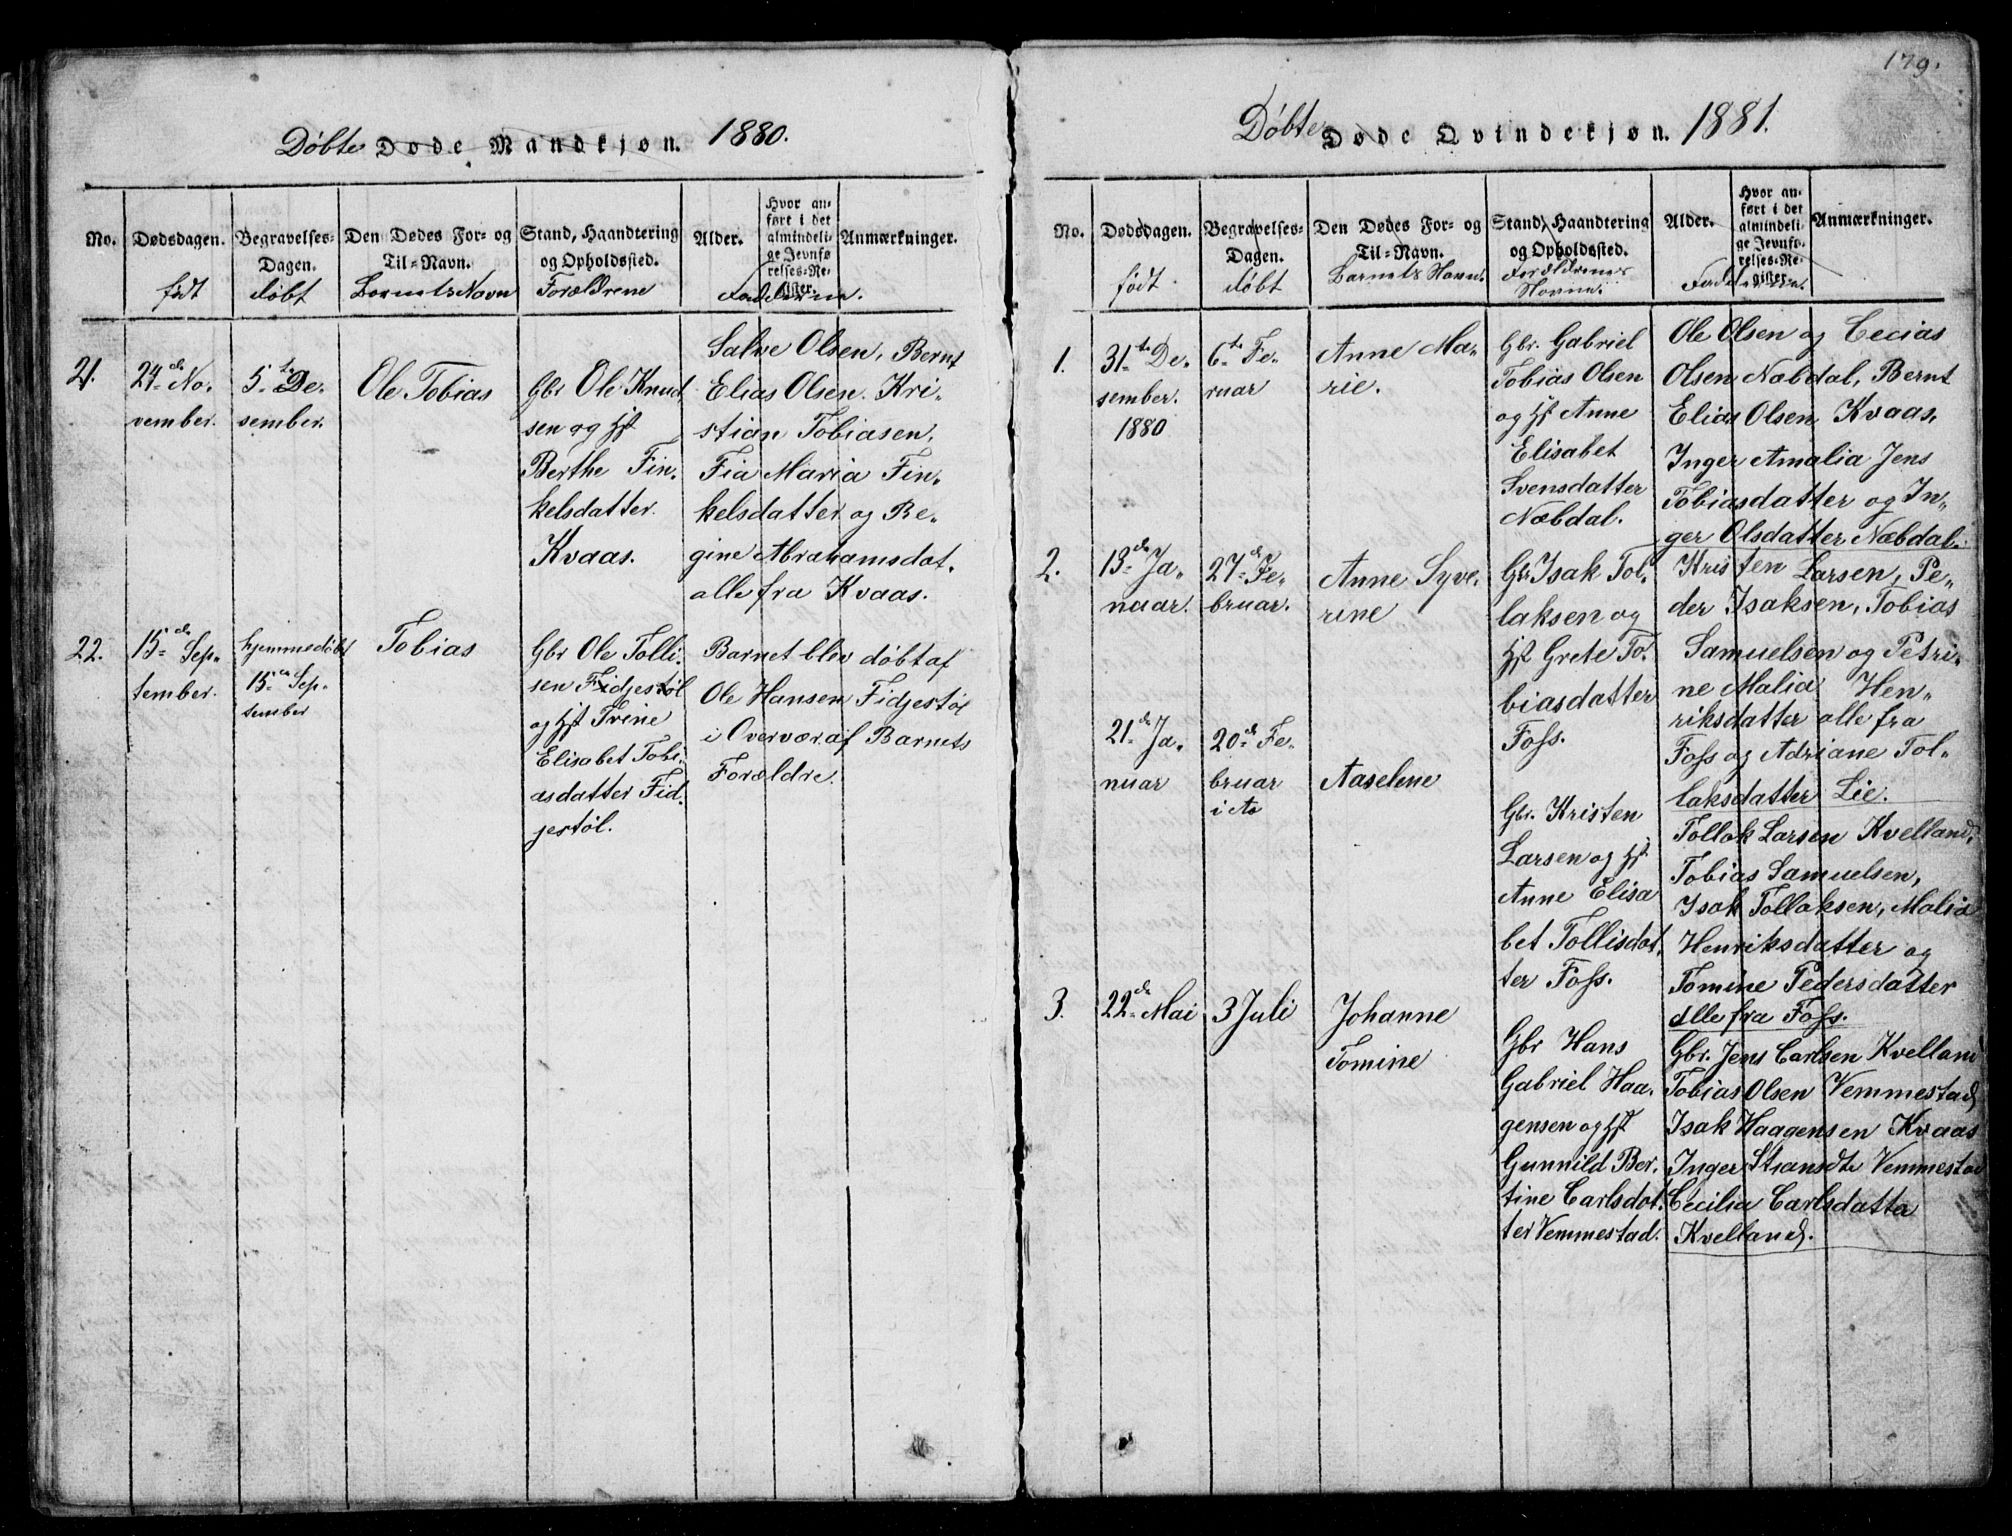 Døbte Døde Mandkjøn. 1880.
No.
Dødsdagen.
født
Begravelses-
Dagen.
døbt
Den Dødes For- og
Til-Navn.
Barnets Navn
Stand, Haandtering
og Opholdssted.
Forældrene
Alder.
Hvor an-
ført i det
almindeli-
ge Jevnfø
relses-Re-
gister.
Fadderne.
Anmærkninger.
21.
24de No-
vember.
5te De-
sember.
Ole Tobias
Gbr Ole Knud
sen og Hst
Berthe Fin-
kelsdatter.
Kvaas.
Salve Olsen, Bernt
Elias Olsen. Kri-
stian Tobiasen,
Fia Maria Fin-
kelsdatter og Re-
gine Abrahamsdat.
alle fra Kvaas.
22.
15de Sep-
tember.
hjemmedøbt
15de Sep-
tember
Tobias
Gbr Ole Tolli-
sen Fidjestøl
og Hst Trine
Elisabet Tobi-
asdatter Fid-
jestøl.
Barnet blev døbt af
Ole Hansen Fidjestøl
i Overvær af Barnets
Forældre.
179.
Døbte Døde Qvindekjøn. 1881.
No.
Dødsdagen.
født
Begravelses-
Dagen.
døbt
Den Dødes For- og
Til-Navn.
Barnets Navn.
Stand, Haandtering
og Opholdssted.
Forældrenes
Navne.
Alder.
Hvor an-
ført i det
almindeli-
ge Jevnfø-
relses-Re-
gister.
Fadderne.
Anmærkninger.
1.
31te De-
sember.
1880
6te Fe-
ruar
Anne Ma-
rie.
Gbr. Gabriel
Tobias Olsen
og Hst Anne
Elisabet
Svensdatter
Næbdal.
Ole Olsen og Cecias
Olsen Næbdal, Bernt
Elias Olsen Kvaas,
Inger Amalia Jens
Tobiasdatter og In-
ger Olsdatter Næbdal.
2.
13de Ja-
nuar.
27de Fe-
bruar.
Anne Syve-
rine
Gbr Isak Tol-
laksen og
Hst Grete To-
biasdatter
Foss.
Kristen Larsen, Pe-
der Isaksen, Tobias
Samuelsen og Petri-
ne Malia Hen-
riksdatter alle fra
Foss og Adriane Tol-
laksdatter Lie.
21de Ja-
nuar
20de Fe-
bruar
i Aa
Aaselene
Gbr. Kristen
Larsen og Hst
Anne Elisa
bet Tollisdat-
ter Foss.
Tollak Larsen Kvelland,
Tobias Samuelsen,
Isak Tollaksen, Malia
Henriksdatter og
Tomine Pedersdatter
alle fra Foss.
3.
22de Mai
3 Juli
Johanne
Tomine
Gbr Hans
Gabriel Haa-
gensen og Hst
Gunnild Ber-
tine Carlsdat-
ter Vemmestad.
Gbr. Jens Carlsen Kvelland
Tobias Olsen Vemmestad,
Isak Haagensen Kvaas
Inger Stiansdtr Vemmestad
Cecilia Carlsdatter
Kvelland.